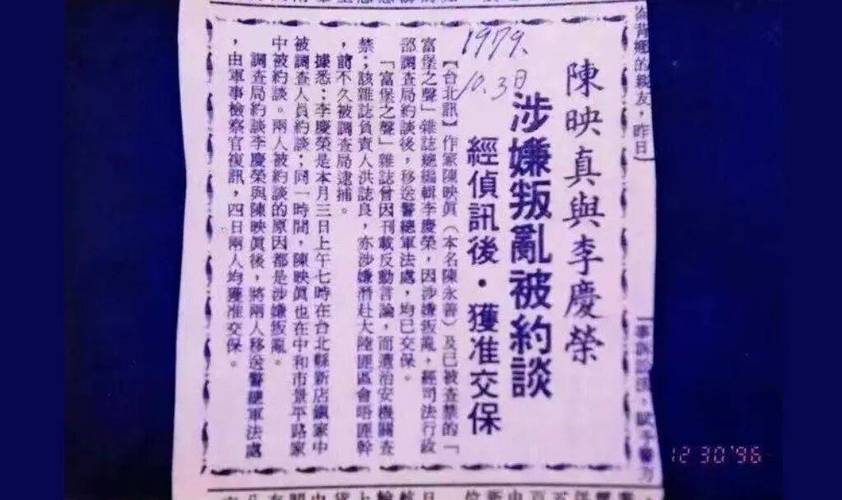 陳映真與李慶榮
涉嫌叛亂被約談
經偵訊後・獲准交保
1979.
10.3日
【台北訊】作家陳映眞（本名陳永善）及已被查禁的「
富堡之聲」雜誌總編輯李慶榮，因涉嫌叛亂，經司法行政
部調查局約談後，移送警總軍法處，均已交保。
「富堡之聲」雜誌曾因刊載反動言論，而遭治安機關查
禁；該雜誌負責人洪誌良，亦涉嫌潛赴大陸匪區會晤匪幹
，前不久被調查局逮捕。
據悉：李慶榮是本月三日上午七時在台北縣新店鎭家中
被調查人員約談；同一時間，陳映眞也在中和市景平路家
中被約談。兩人被約談的原因都是涉嫌叛亂。
調查局約談李慶榮與陳映眞後，將兩人移送警總軍法處
，由軍事檢察官複訊，四日兩人均獲准交保。
的親友，昨日
12 30 '96